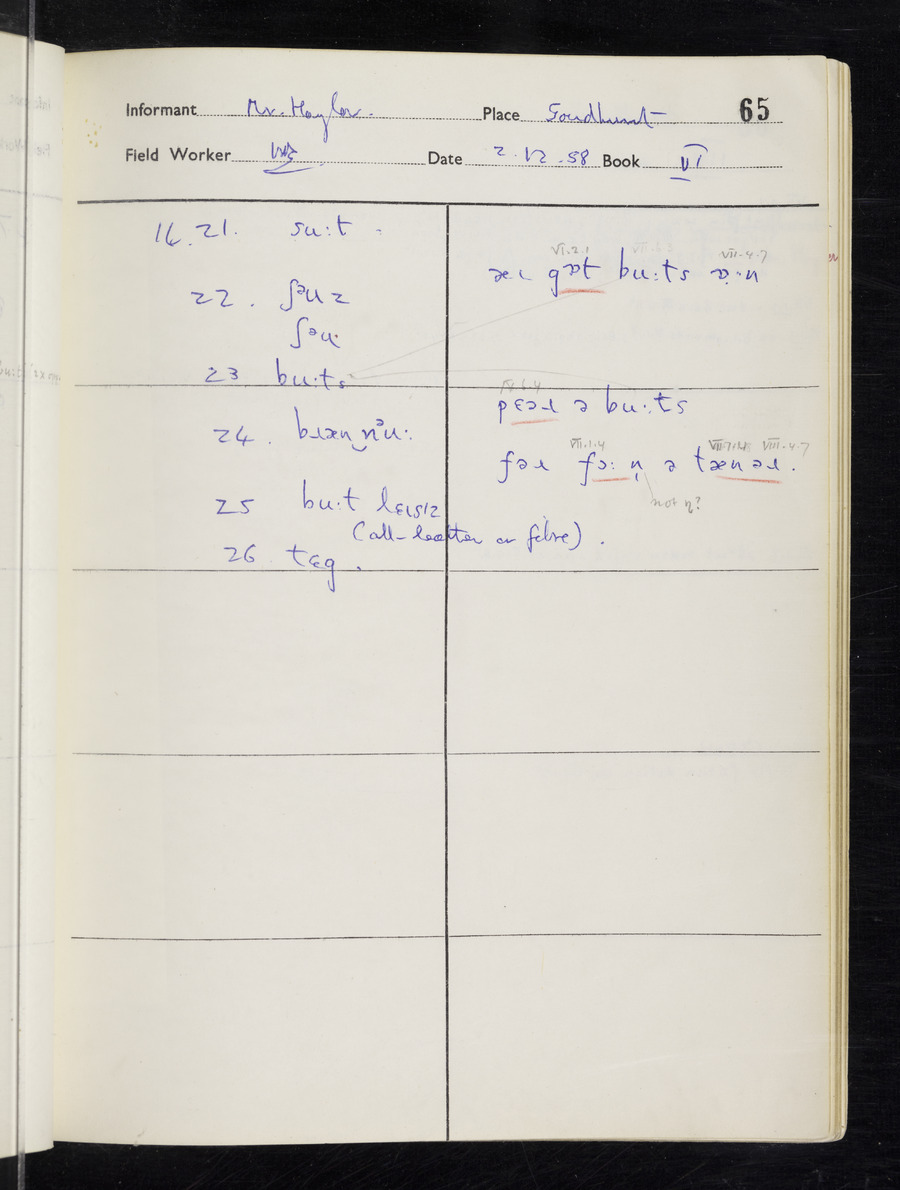 Informant Mr. Haylor. Place Goudhurst 65
Field Worker Date 2.12.58 Book VI
14.21. su:t
22. ʃᵊuz
ʃᵊu:
23 bu:ts
24. bɹæn nᵊu:
25 bu:t lɛɪsɪz
(all leather or fibre).
26 tɛg.
VI.2.1 VII.4.7
æɪ gɒt bu:ts ɒ:n
pɛəɹ ə bu:ts
VII.1.4 VIII.4.7
fəɹ fɔ: n̩ ə tænəɹ.
not ŋ?